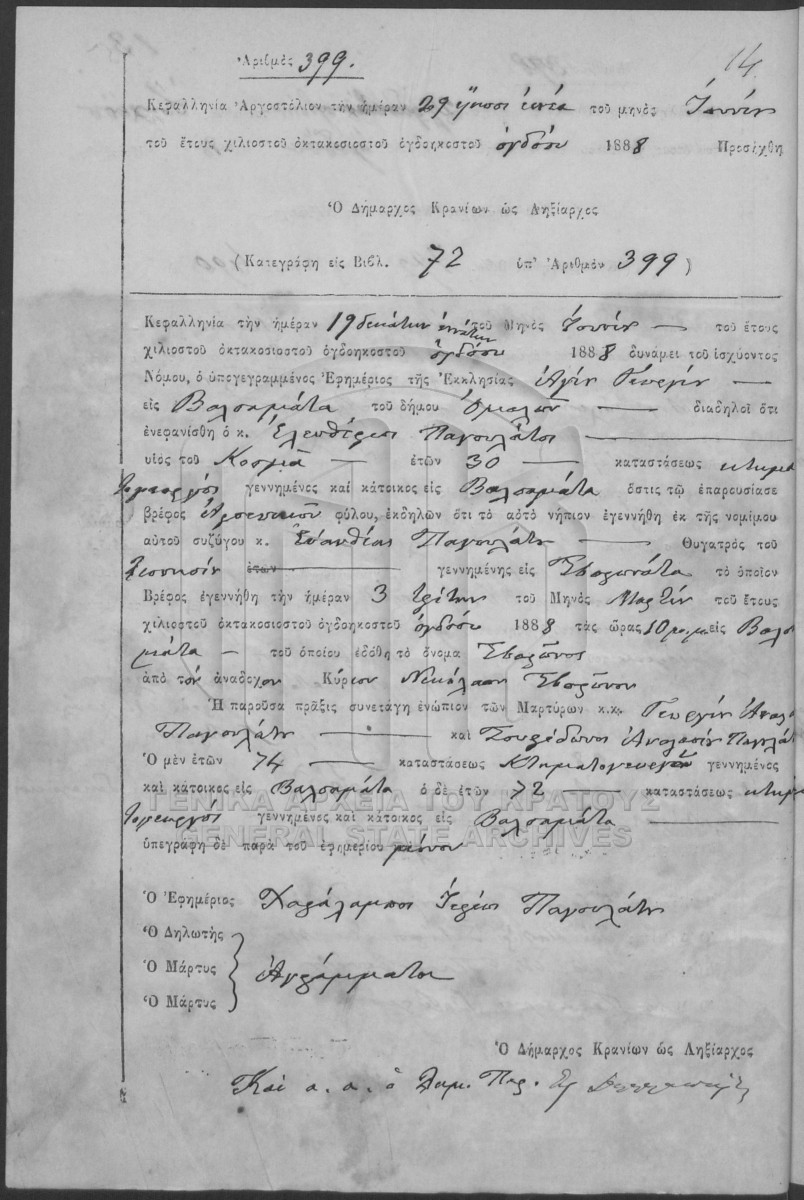 14
Ἀριθμὸς 399.
Κεφαλληνία Ἀργοστόλιον τὴν ἡμέραν 29 εἴκοσι ἐννέα τοῦ μηνὸς Ἰουνίου
τοῦ ἔτους χιλιοστοῦ ὀκτακοσιοστοῦ ὀγδοηκοστοῦ ὀγδόου 1888 Προσήχθη
Ὁ Δήμαρχος Κρανίων ὡς Ληξίαρχος
(Κατεγράφη εἰς Βιβλ. 72 ὑπ' Ἀριθμὸν 399)
Κεφαλληνία τὴν ἡμέραν 19 δεκάτην ἐννάτην τοῦ Μηνὸς Ἰουνίου τοῦ ἔτους
χιλιοστοῦ ὀκτακοσιοστοῦ ὀγδοηκοστοῦ ὀγδόου 1888 δυνάμει τοῦ ἰσχύοντος
Νόμου, ὁ ὑπογεγραμμένος Ἐφημέριος τῆς Ἐκκλησίας Ἁγίου Γεωργίου
εἰς Βαλσαμάτα τοῦ δήμου Ὁμαλῶν διαδηλοῖ ὅτι
ἐνεφανίσθη ὁ κ. Ἐλευθέριος Παγουλάτος
υἱὸς τοῦ Κοσμᾶ ἐτῶν 30 καταστάσεως κτημα
τογεωργός γεννημένος καὶ κάτοικος εἰς Βαλσαμάτα ὅστις τῷ ἐπαρουσίασε
βρέφος Ἀρσενικοῦ φύλου, ἐκδηλῶν ὅτι τὸ αὐτὸ νήπιον ἐγεννήθη ἐκ τῆς νομίμου
αὐτοῦ συζύγου κ. Εὐανθίας Παγουλάτου Θυγατρὸς τοῦ
ἐτῶν γεννημένης εἰς Σβορωνάτα τὸ ὁποῖον
Βρέφος ἐγεννήθη τὴν ἡμέραν 3 τρίτην τοῦ Μηνὸς Μαρτίου τοῦ ἔτους
χιλιοστοῦ ὀκτακοσιοστοῦ ὀγδοηκοστοῦ ὀγδόου 1888 τὰς ὥρας 10 μ.μ. εἰς Βαλσα
μάτα τοῦ ὁποίου ἐδόθη τὸ ὄνομα Σβορῶνος
ἀπὸ τὸν ἀνάδοχον Κύριον Νικόλαον Σβορῶνον
Ἡ παροῦσα πρᾶξις συνετάγη ἐνώπιον τῶν Μαρτύρων κ.κ. Γεωργίου
Παγουλάτου καὶ Σπυρίδωνος Παγουλάτου
Ὁ μὲν ἐτῶν 74 καταστάσεως Κτηματογεωργοῦ γεννημένος
καὶ κάτοικος εἰς Βαλσαμάτα ὁ δὲ ἐτῶν 72 καταστάσεως κτημα
τογεωργός γεννημένος καὶ κάτοικος εἰς Βαλσαμάτα
ὑπεγράφη δὲ παρὰ τοῦ ἐφημερίου μόνου
ΓΕΝΙΚΑ ΑΡΧΕΙΑ ΤΟΥ ΚΡΑΤΟΥΣ
GENERAL STATE ARCHIVES
Ὁ Ἐφημέριος Χαράλαμπος Ἱερεὺς Παγουλάτος
Ὁ Δηλωτὴς
Ὁ Μάρτυς Ἀγράμματοι
Ὁ Μάρτυς
Ὁ Δήμαρχος Κρανίων ὡς Ληξίαρχος
Καὶ α. α. ὁ Δημ. Παρ.